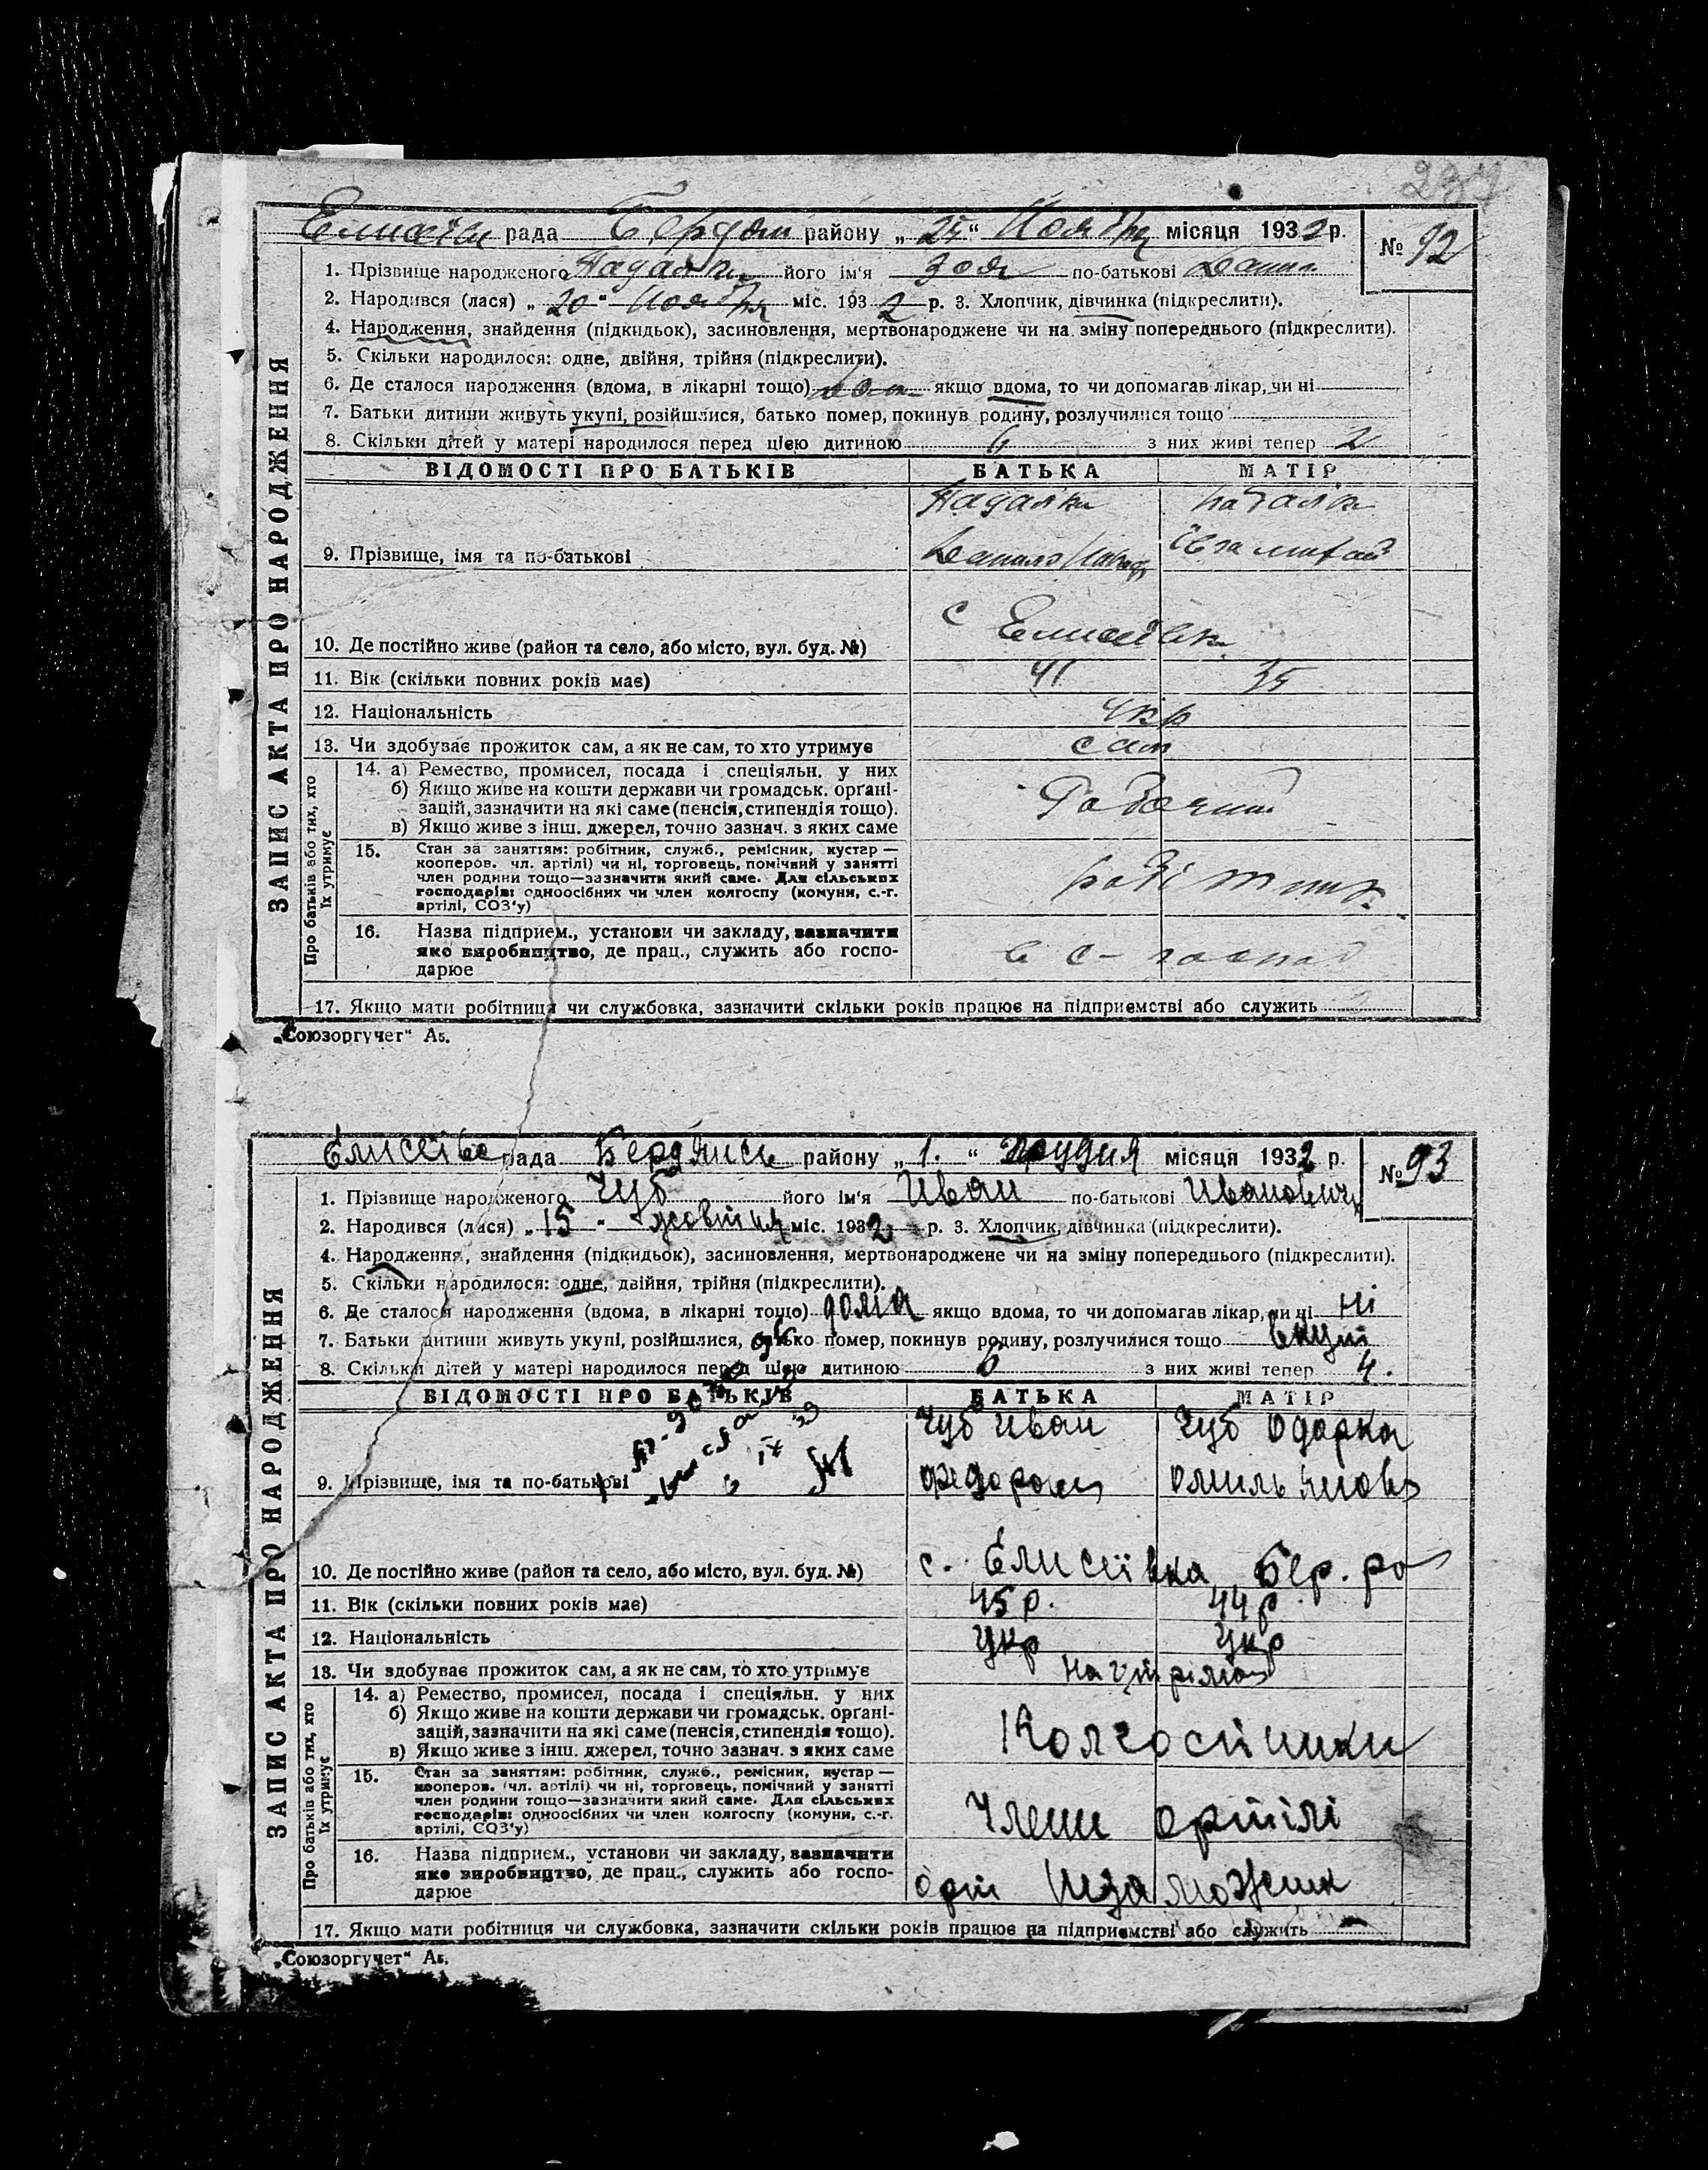 237
Елисеївс рада Бердян району „25“ Ноября місяця 1932 р. № 92
1. Прізвище народженого Падалк його ім'я Зоя по-батькові Данил
2. Народився (лася) „20“ Ноября міс. 1932 р. 3. Хлопчик, дівчинка (підкреслити).
4. Народження, знайдення (підкидьок), засиновлення, мертвонароджене чи на зміну попереднього (підкреслити).
5. Скільки народилося: одне, двійня, трійня (підкреслити).
6. Де сталося народження (вдома, в лікарні тощо) якщо вдома, то чи допомагав лікар, чи ні
7. Батьки дитини живуть укупі, розійшлися, батько помер, покинув родину, розлучилися тощо
8. Скільки дітей у матері народилося перед цією дитиною з них живі тепер 2
ЗАПИС АКТА ПРО НАРОДЖЕННЯ
ВІДОМОСТІ ПРО БАТЬКІВ БАТЬКА МАТІР
Падалка Наталка
9. Прізвище, імя та по-батькові Данило
с Елисеївка
10. Де постійно живе (район та село, або місто, вул. буд. №)
11. Вік (скільки повних років має) 41 35
12. Національність Укр
13. Чи здобуває прожиток сам, а як не сам, то хто утримує сам
Про батьків або тих, хто їх утримує
14. а) Ремество, промисел, посада і спеціяльн. у них
б) Якщо живе на кошти держави чи громадськ. орґані-
зацій, зазначити на які саме (пенсія, стипендія тощо).
в) Якщо живе з інш. джерел, точно зазнач. з яких саме
Рабочий
15. Стан за заняттям: робітник, служб., ремісник, кустар —
кооперов. чл. артілі) чи ні, торговець, помічний у занятті
член родини тощо—зазначити який саме. Для сільських
господарів: одноосібних чи член колгоспу (комуни, с.-г.
артілі, СОЗ'у)
робітник
16. Назва підприєм., установи чи закладу, зазначити
яке виробництво, де прац., служить або госпо-
дарює
в с-господ
17. Якщо мати робітниця чи службовка, зазначити скільки років працює на підприємстві або служить
„Союзоргучет“ А5.
Елисеївс рада Бердянськ району „1.“ Грудня місяця 1932 р. № 93
1. Прізвище народженого Чуб його ім'я Иван по-батькові Иванович
2. Народився (лася) „15“ жовтня міс. 1932 р. 3. Хлопчик, дівчинка (підкреслити).
4. Народження, знайдення (підкидьок), засиновлення, мертвонароджене чи на зміну попереднього (підкреслити).
5. Скільки народилося: одне, двійня, трійня (підкреслити).
6. Де сталося народження (вдома, в лікарні тощо) дома якщо вдома, то чи допомагав лікар, чи ні Ні
7. Батьки дитини живуть укупі, розійшлися, батько помер, покинув родину, розлучилися тощо вкупі
8. Скільки дітей у матері народилося перед цією дитиною 6 з них живі тепер 4.
ЗАПИС АКТА ПРО НАРОДЖЕННЯ
ВІДОМОСТІ ПРО БАТЬКІВ БАТЬКА МАТІР
Чуб Иван Чуб Одарка
9. Прізвище, імя та по-батькові Федоров Омильянов
10. Де постійно живе (район та село, або місто, вул. буд. №) с. Елисеївка Бер. ра
11. Вік (скільки повних років має) 45 р. 44 р
12. Національність Укр Укр
13. Чи здобуває прожиток сам, а як не сам, то хто утримує
Про батьків або тих, хто їх утримує
14. а) Ремество, промисел, посада і спеціяльн. у них
б) Якщо живе на кошти держави чи громадськ. орґані-
зацій, зазначити на які саме (пенсія, стипендія тощо).
в) Якщо живе з інш. джерел, точно зазнач. з яких саме
Колгоспники
15. Стан за заняттям: робітник, служб., ремісник, кустар —
кооперов. (чл. артілі) чи ні, торговець, помічний у занятті
член родини тощо—зазначити який саме. Для сільських
господарів: одноосібних чи член колгоспу (комуни, с.-г.
артілі, СОЗ'у)
Члени артілі
16. Назва підприєм., установи чи закладу, зазначити
яке виробництво, де прац., служить або госпо-
дарює
арт Незаможник
17. Якщо мати робітниця чи службовка, зазначити скільки років працює на підприємстві або служить —
„Союзоргучет“ А5.